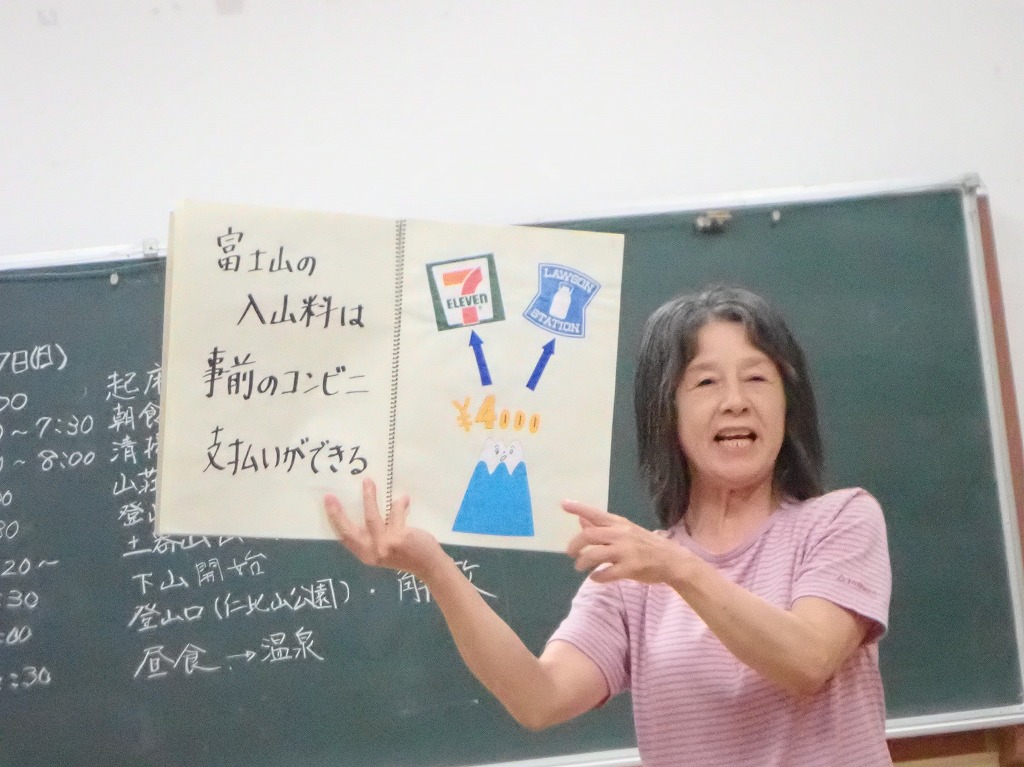 富士山の
入山料は
事前のコンビニ
支払いができる
7 ELEVEN
LAWSON
STATION
¥4000
7日(日)
00
~7:30 朝食
~8:00
山荘
30
20~
下山開始
:30 登山口(仁比山公園)・解散
:00
昼食→温泉
:30